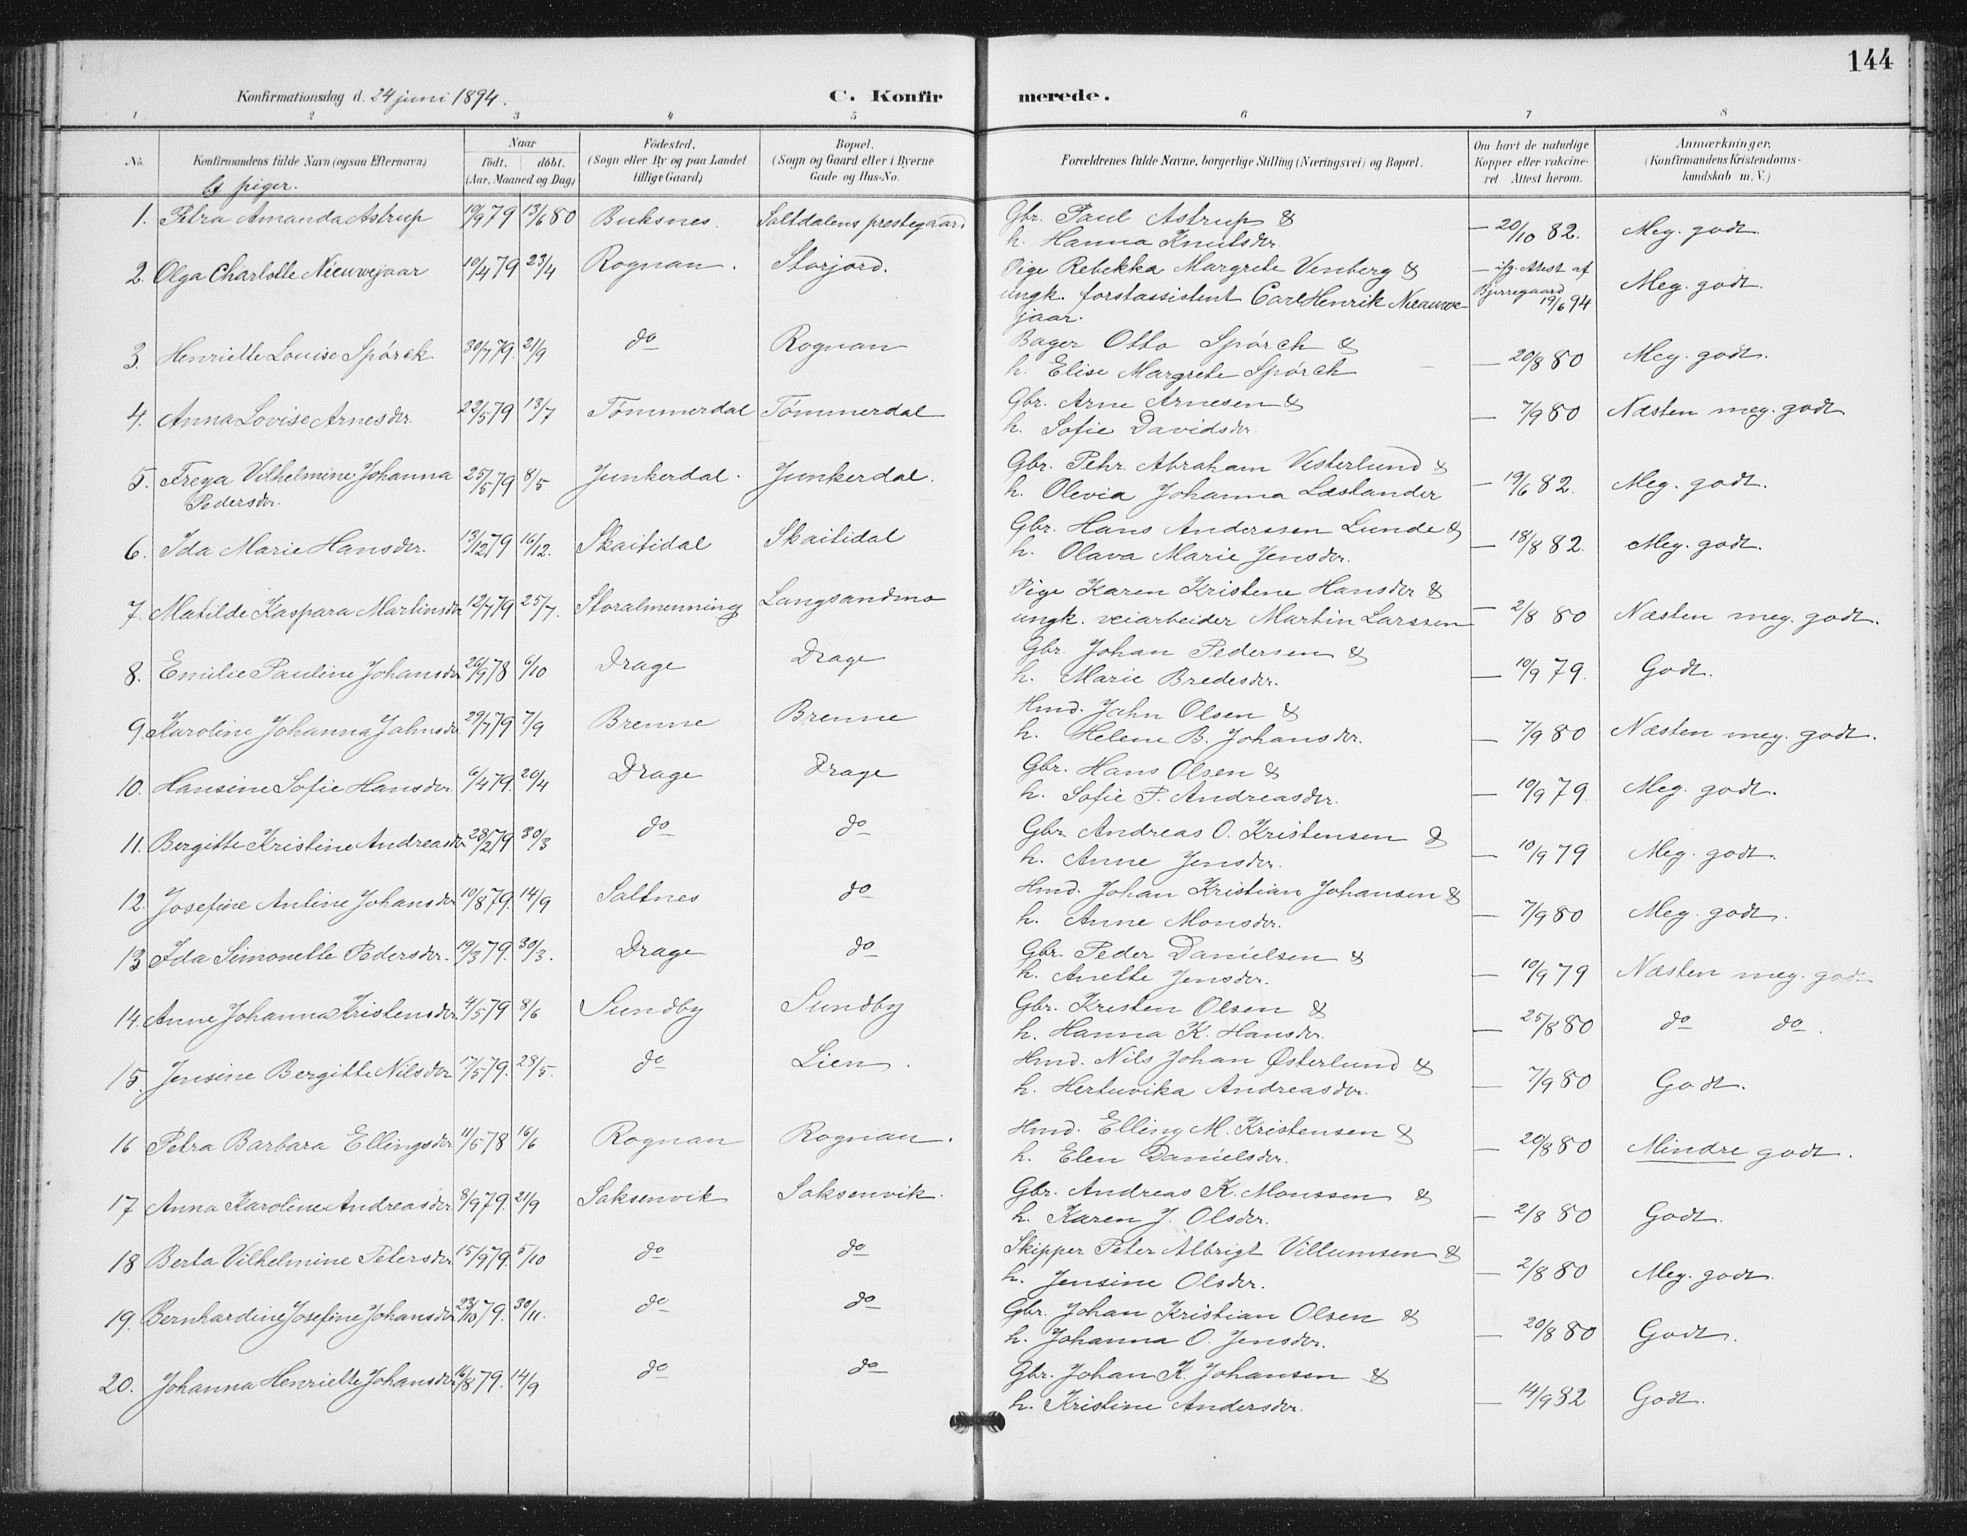 144
Konfirmationsdag d. 24 juni 1894.
C. Konfirmerede.
1 2 3 4 5 6 7 8
No. Konfirmandens fulde Navn (ogsaa Efternavn) Naar Födt. döbt. (Aar, Maaned og Dag) Födested. (Sogn eller By og paa Landet tillige Gaard) Bopæl. (Sogn og Gaard eller i Byerne Gade og Hus-No. Forældrenes fulde Navne, borgerlige Stilling (Næringsvei) og Bopæl. Om havt de naturlige Kopper eller vakcineret Attest herom. Anmærkninger, (Konfirmandens Kristendomskundskab m. V.)
piger.
1. Petra Amanda Astrup 19/9 79 13/6 80 Buksnes. Saltdalens prestegaard Gbr. Paul Astrup &
h. Hanna Knutsdr. — 20/10 82. Meg. godt
2. Olga Charlotte Nieuwejaar 10/4 79 23/4 Rognan. Storjord. Pige Rebekka Margrete Venberg &
ungk. forstassistent Carl Henrik Nieuwe
jaar. — ifg. Attest af
Bjerregaard
19/6 94 Meg. godt.
3. Henriette Louise Spörck 30/7 79. 21/9 do Rognan Bager Otto Spörch &
h. Elise Margrete Spörch — 20/8 80 Meg. godt.
4. Anna Lovise Arnesdr. 22/5 79 13/7 Tömmerdal Tömmerdal Gbr. Arne Arnesen &
h. Sofie Davidsdr. — 7/9 80 Næsten meg. godt
5. Freya Vilhelmine Johanna
Pedersdr. 25/5 79 8/5 Junkerdal. Junkerdal. Gbr. Pehr Abraham Vesterlund &
h. Olevia Johanna Læstander — 19/6 82. Meg. godt.
6. Ida Marie Hansdr. 13/12 79 16/12. Skaitidal Skaitidal Gbr. Hans Anderssen Lunde &
h. Olava Marie Jensdr. — 18/8 82. Meg. godt.
7. Matilde Kaspara Martinsdr 12/7 79 25/7. Storalmenning Langsandmo Pige Karen Kristene Hansdr &
ungk. veiarbeider Martin Larssen — 2/8 80 Næsten meg. godt.
8. Emilie Pauline Johansdr 26/9 78 6/10 Drage Drage Gbr. Johan Pedersen &
h. Marie Bredesdr. — 10/9 79. Godt.
9. Karoline Johanna Jahnsdr 29/7 79 7/9 Brenne Brenne Hmd. Jahn Olsen &
h. Helene B. Johansdr. — 7/9 80 Næsten meg. godt.
10. Hansine Sofie Hansdr 6/4 79. 20/4 Drage Drage Gbr. Hans Olsen &
h. Sofie P. Andreasdr. — 10/9 79. Meg. godt.
11. Bergitte Kristine Andreasdr 28/2 79 30/3 do do Gbr Andreas O. Kristensen &
h. Anne Jensdr. — 10/9 79 Meg. godt.
12. Josefine Antine Johansdr 10/8 79. 14/9 Saltnes do Hmd. Johan Kristian Johansen &
h. Anne Monsdr. — 7/9 80 Meg. godt.
13 Ida Simonette Pedersdr. 19/3 79. 30/3. Drage do Gbr. Peder Danielsen &
h. Anette Jensdr. — 10/9 79 Næsten meg. godt
14. Anne Johanna Kristensdr. 4/5 79 8/6 Sundby Sundby Gbr. Kristen Olsen &
h. Hanna K. Hansdr. — 25/8 80 do do.
15. Jensine Bergitte Nilsdr 17/5 79. 28/5. do Lien. Hmd. Nils Johan Østerlund &
h. Hertuvika Andreasdr. — 7/9 80 Godt.
16 Petra Barbara Ellingsdr 11/5 78 16/6 Rognan Rognan. Hmd. Elling M. Kristensen &
h. Elen Danielsdr. — 20/8 80 Mindre godt.
17 Anna Karoline Andreasdr 8/9 79. 21/9 Saksenvik Saksenvik. Gbr. Andreas K. Monssen &
h. Karen J. Olsdr. — 2/8 80 Godt.
18 Berta Vilhelmine Petersdr 15/9 79. 5/10 do do Skipper Peter Albrigt Villumsen &
h. Jensine Olsdr. — 2/8 80 Meg. godt.
19. Bernhardine Josefine Johansdr 23/10 79. 30/11. do do Gbr. Johan Kristian Olsen &
h. Johanna O. Jensdr. — 20/8 80 Godt.
20. Johanna Henriette Johansdr 16/8 79. 14/9 do do Gbr. Johan K. Johansen &
h. Kristine Andersdr. — 14/9 82 Godt.